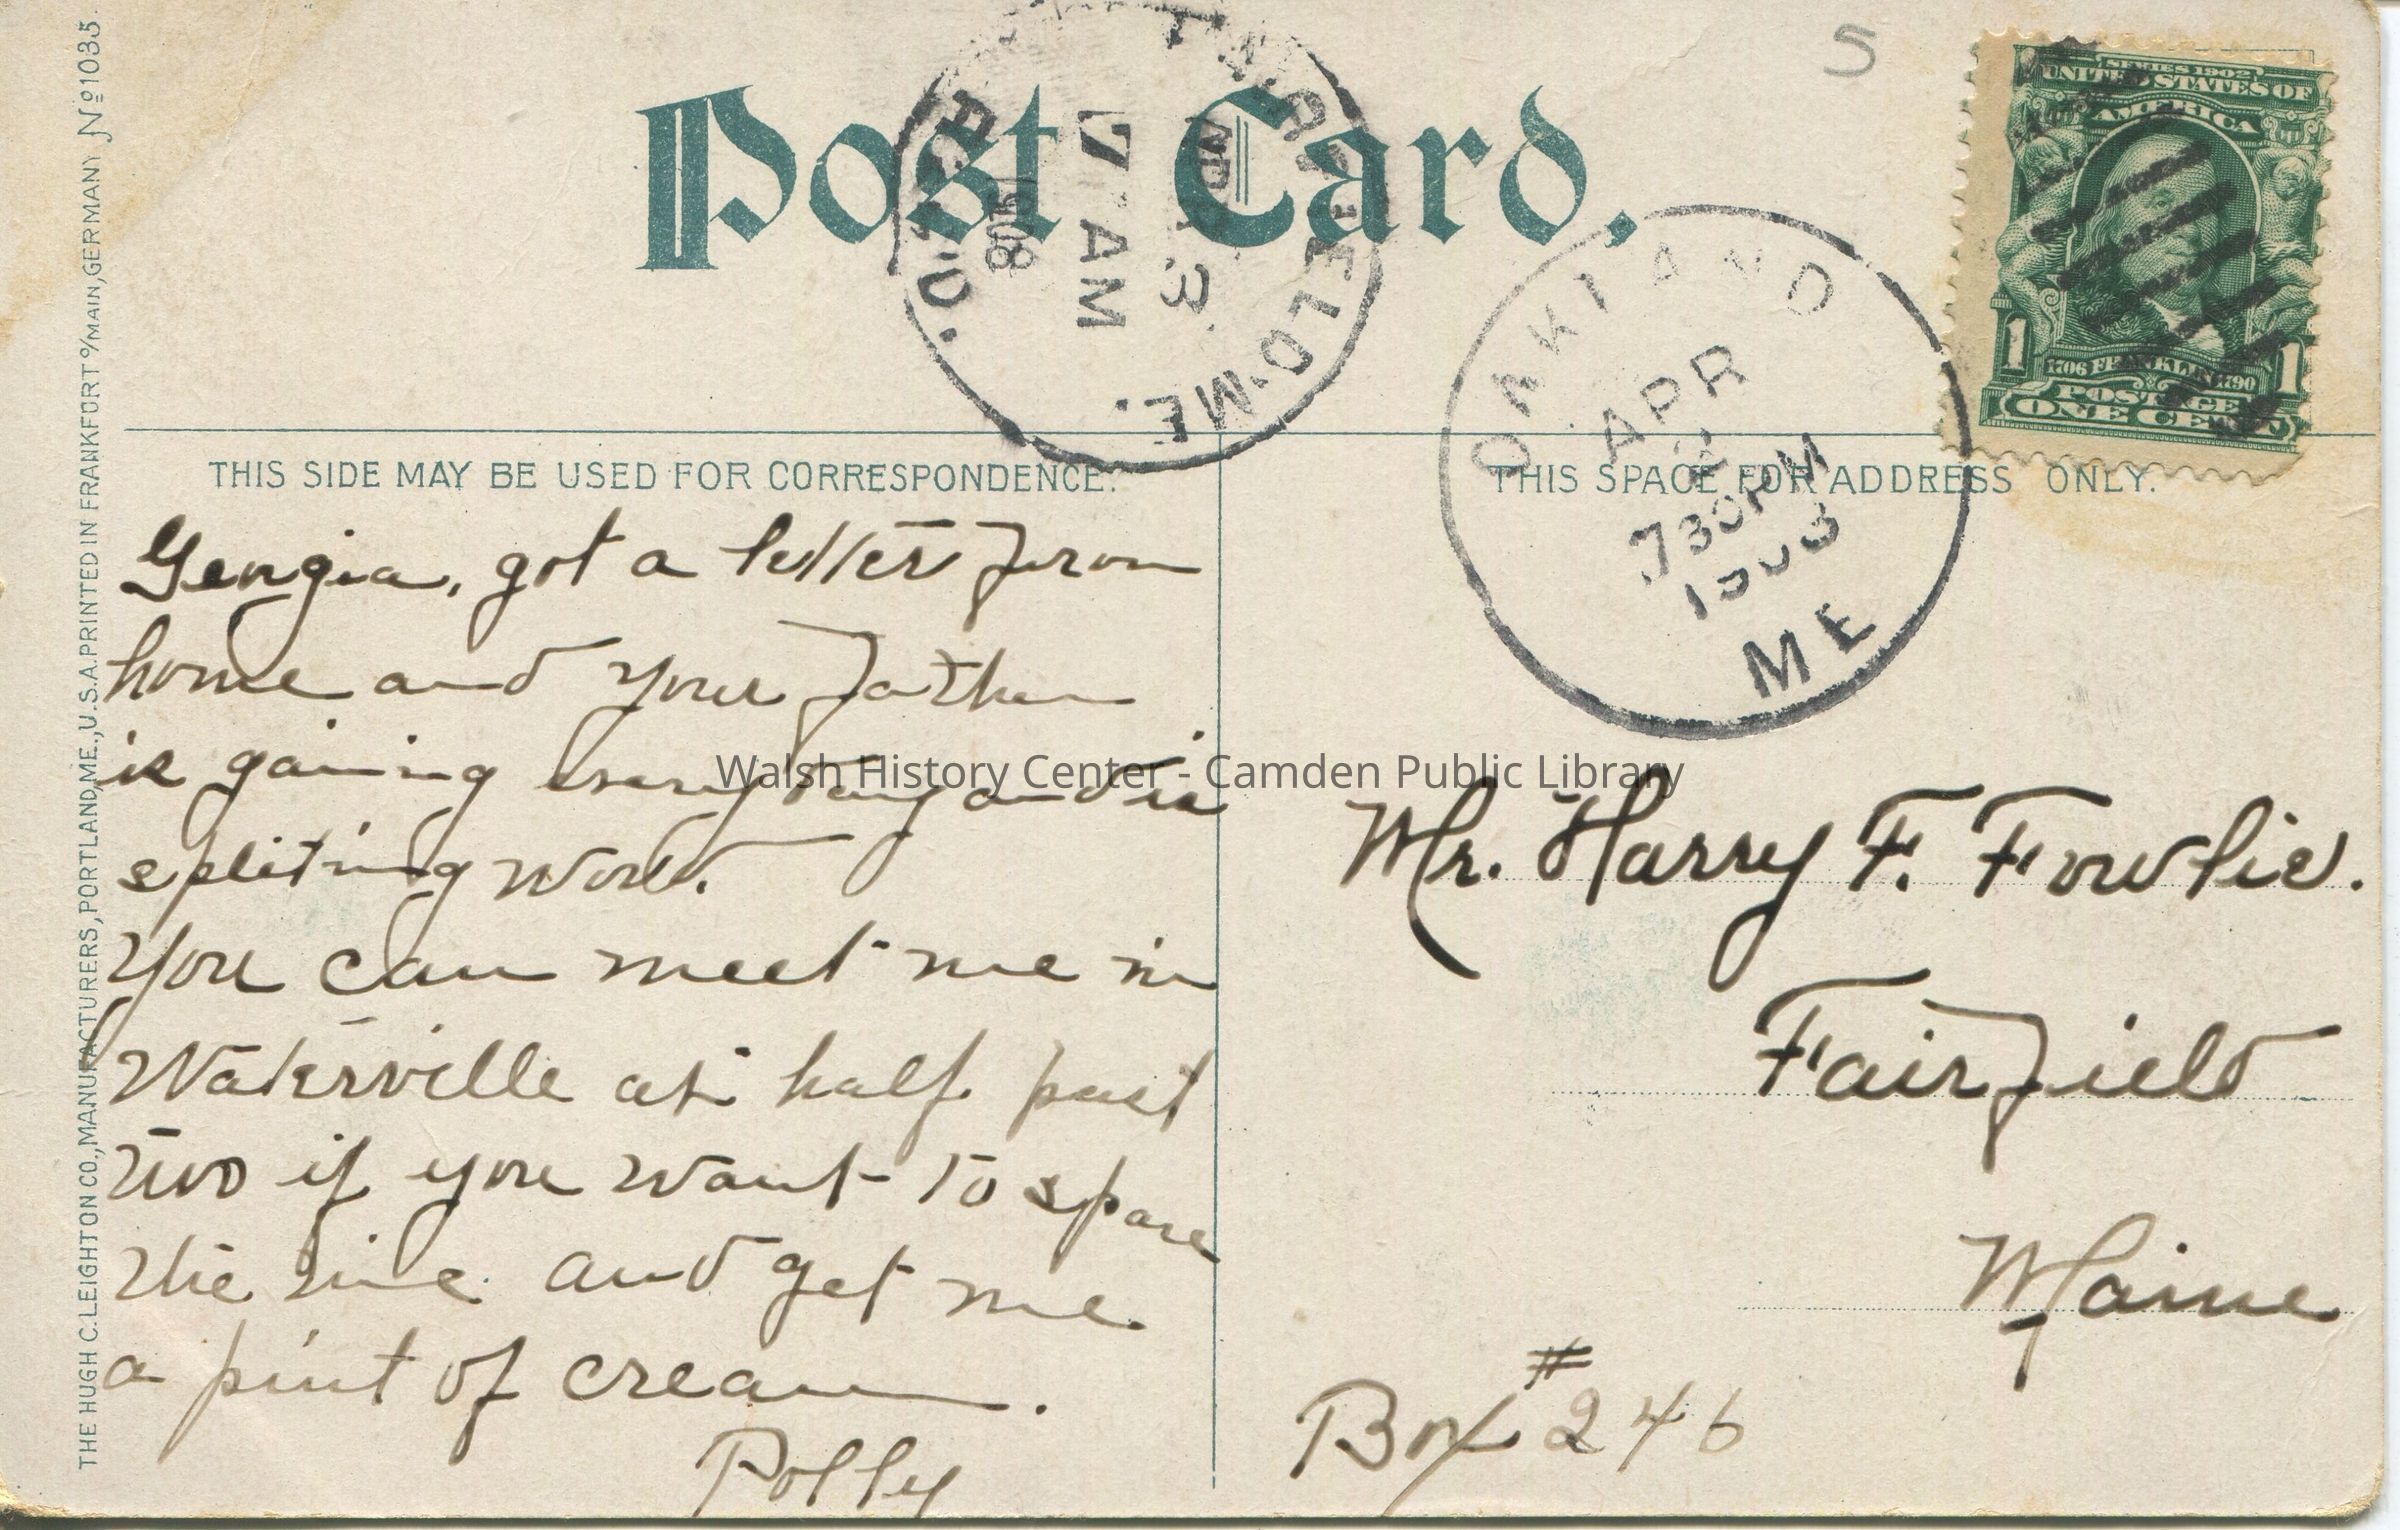 THE HUGH C. LEIGHTON CO., MANUFACTURERERS, PORTLAND, ME., U.S.A. PRINTED IN FRANKFORT o/MAIN, GERMANY No 1035.
Post Card.
5
FAIRFIELD ME.
APR 3
7 AM
1908
REC'D.
OAKLAND
APR
2
730PM
1908
ME
SERIES 1902
UNITED STATES OF
AMERICA
1 1
1706 FRANKLIN 1790
POSTAGE
ONE CENT
THIS SIDE MAY BE USED FOR CORRESPONDENCE.
Georgia, got a letter from
home and your father
is gaining every day and is
spliting wood.
You can meet me in
Waterville at half past
two if you want to spare
the time and get me
a pint of cream.
Polly
THIS SPACE FOR ADDRESS ONLY.
Mr. Harry F. Fowlie.
Fairfield
Maine
Box #246
Walsh History Center - Camden Public Library